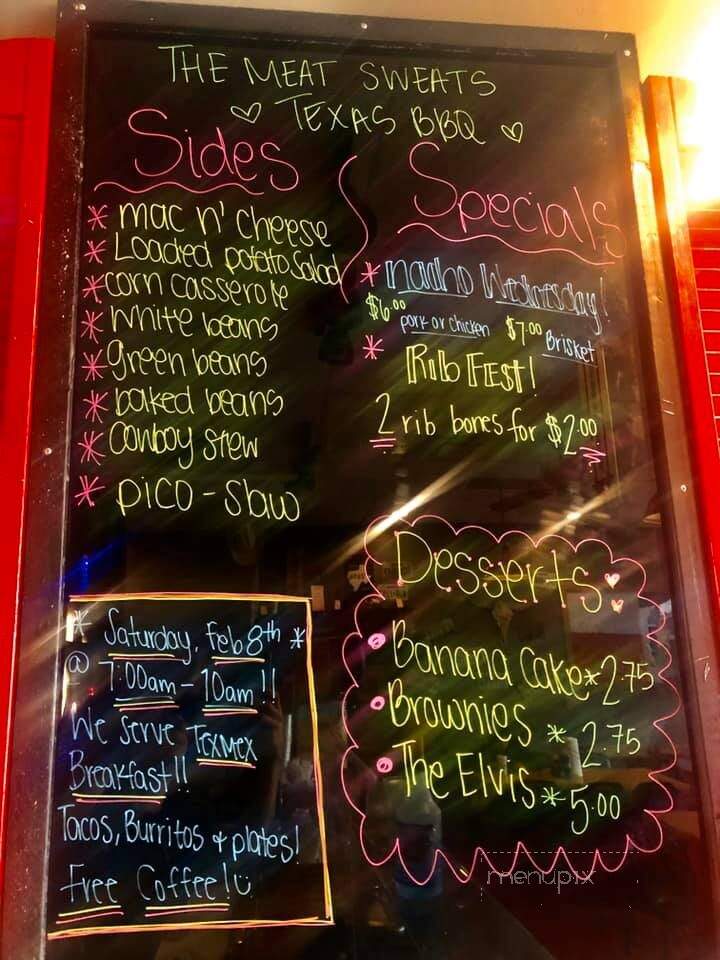 THE MEAT SWEATS
♡ TEXAS BBQ ♡
Sides
* mac n' cheese
* Loaded potato Salad
* corn casserole
* white beans
* green beans
* baked beans
* Cowboy Stew
* pico-slaw
Specials
* nacho Wednesday!
$6.00 pork or chicken $7.00 Brisket
* Rib FEST!
2 rib bones for $2.00
* Saturday, Feb 8th *
@ 7:00am - 10am!!
We serve TexMex
Breakfast!!
Tacos, Burritos & plates!
Free Coffee!
Desserts
Banana Cake * 2.75
Brownies * 2.75
The Elvis * 5.00
menupix